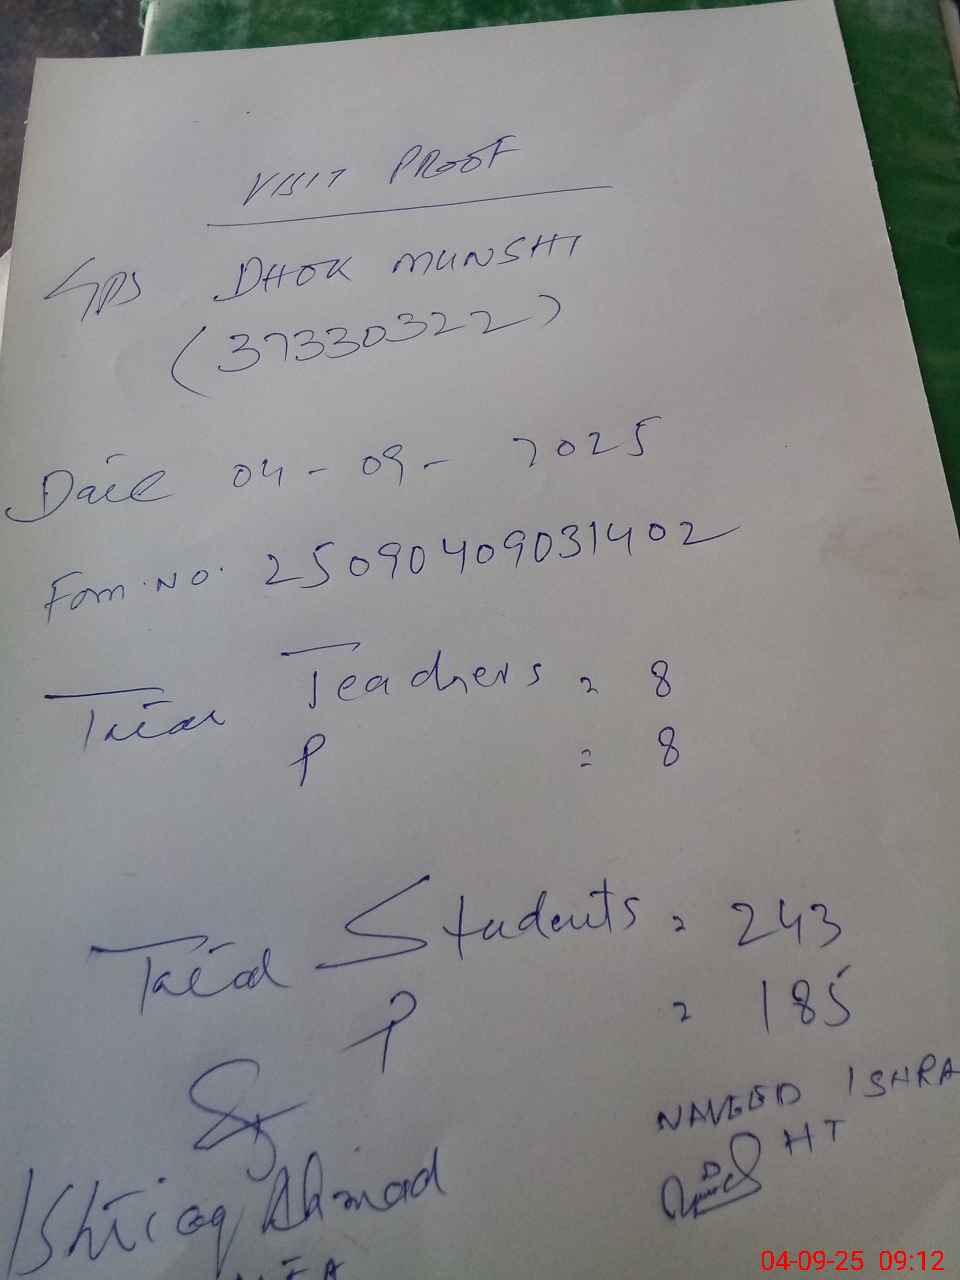 VISIT PROOF
GPS DHOK MUNSHI
(37330322)
Date 04-09-2025
Fom.No. 25090409031402
Total Teachers = 8
P = 8
Total Students = 243
P = 185
NAVEED ISHRA
HT
Ishtiaq Ahmad
04-09-25 09:12